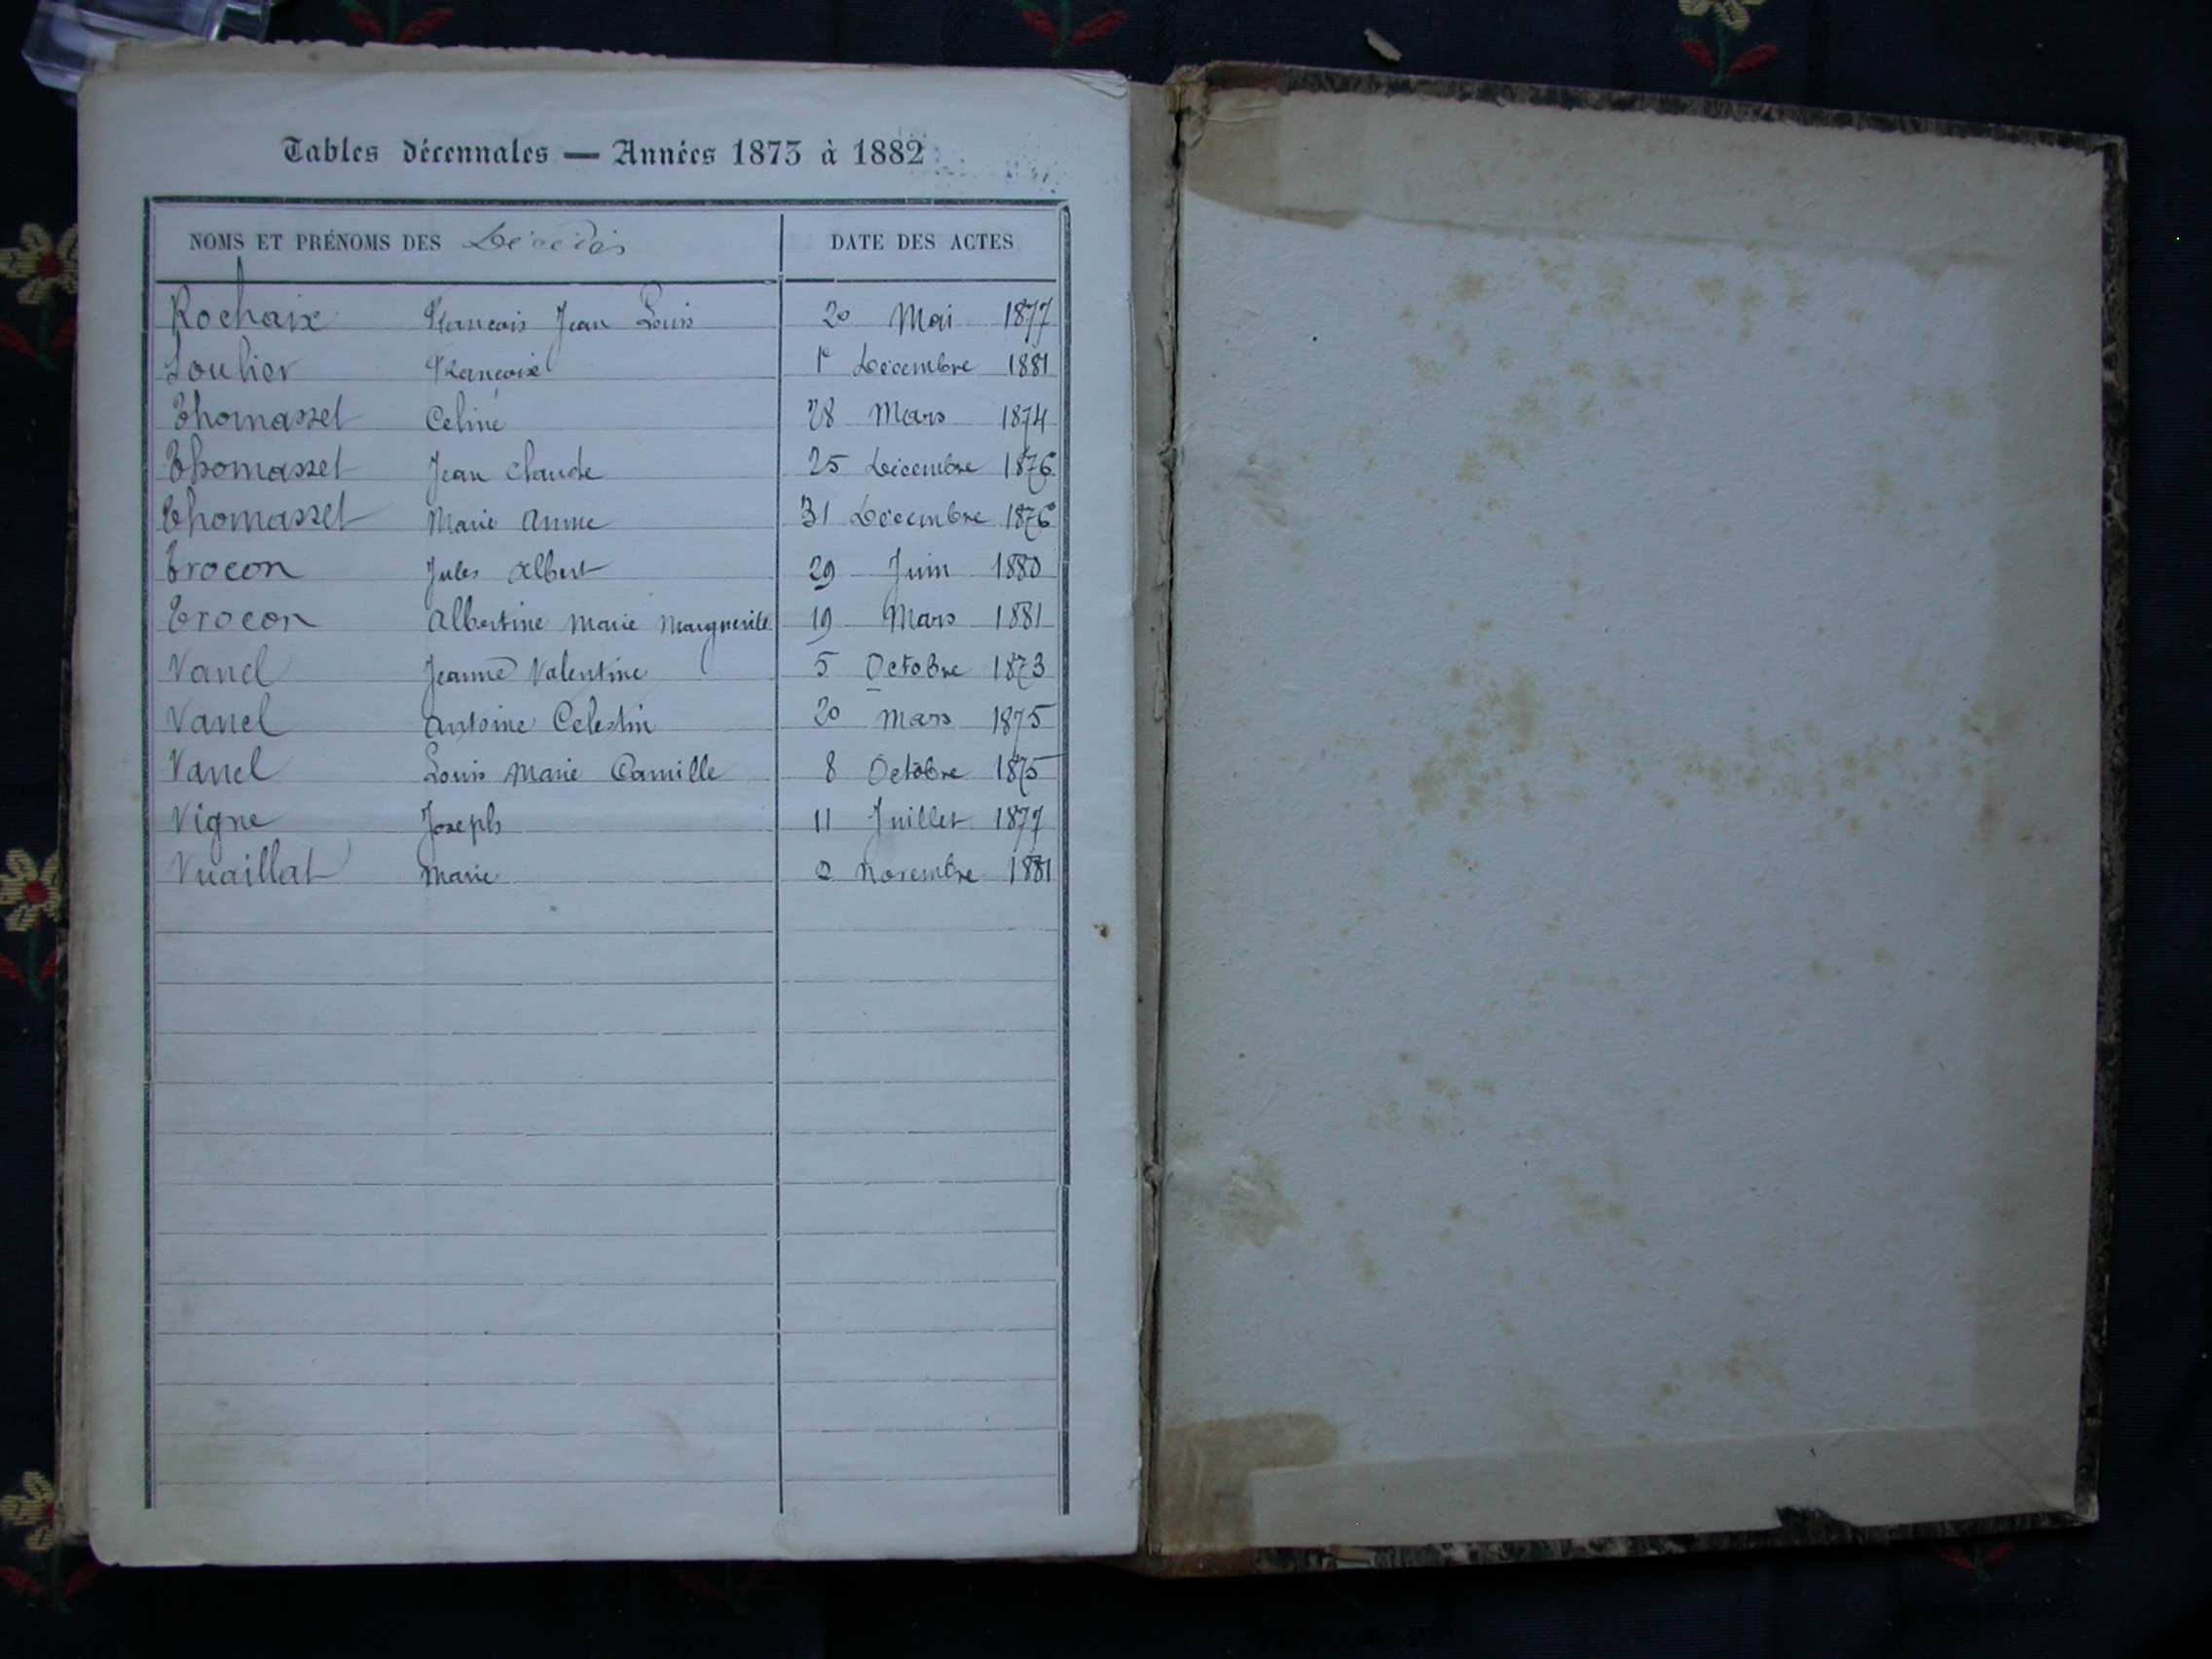 Tables décennales — Années 1873 à 1882
NOMS ET PRÉNOMS DES Décédés DATE DES ACTES
Rochaix François Jean Louis 20 Mai 1877
Soulier François 1er Décembre 1881
Thomasset Celine 28 Mars 1874
Thomasset Jean Claude 25 Décembre 1876
Thomasset Marie Anne 31 Décembre 1876
Trocon Jules Albert 29 Juin 1880
Trocon Albertine Marie Marguerite 19 Mars 1881
Vanel Jeanne Valentine 5 Octobre 1873
Vanel Antoine Celestin 20 Mars 1875
Vanel Louis Marie Camille 8 Octobre 1875
Vigne Joseph 11 Juillet 1877
Vuaillat Marie 2 Novembre 1881